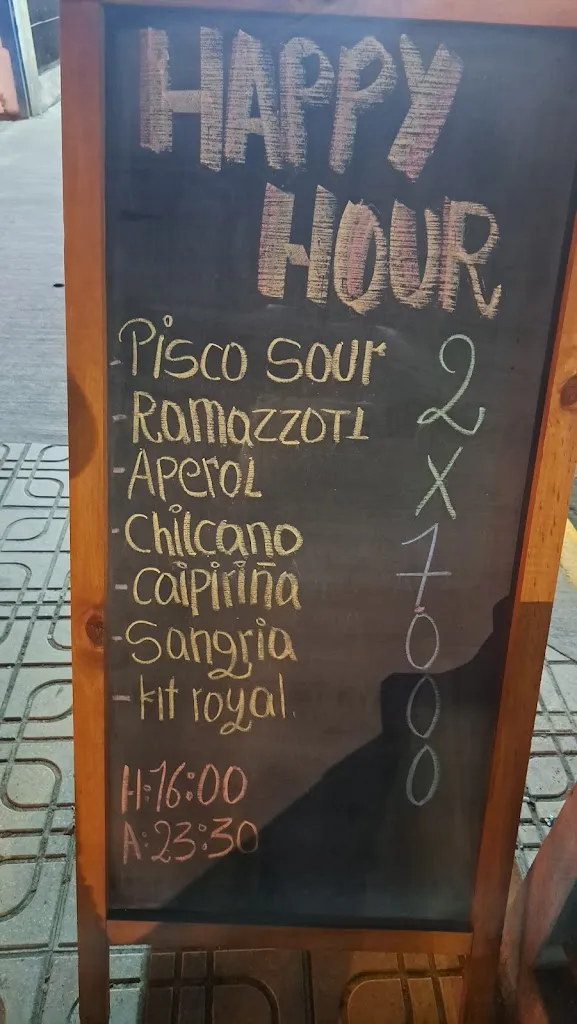 HAPPY
HOUR
- Pisco sour
- Ramazzoti
- Aperol
- Chilcano
- Caipiriña
- Sangria
- kit royal.
2
X
7.
0
0
0
H:16:00
A:23:30